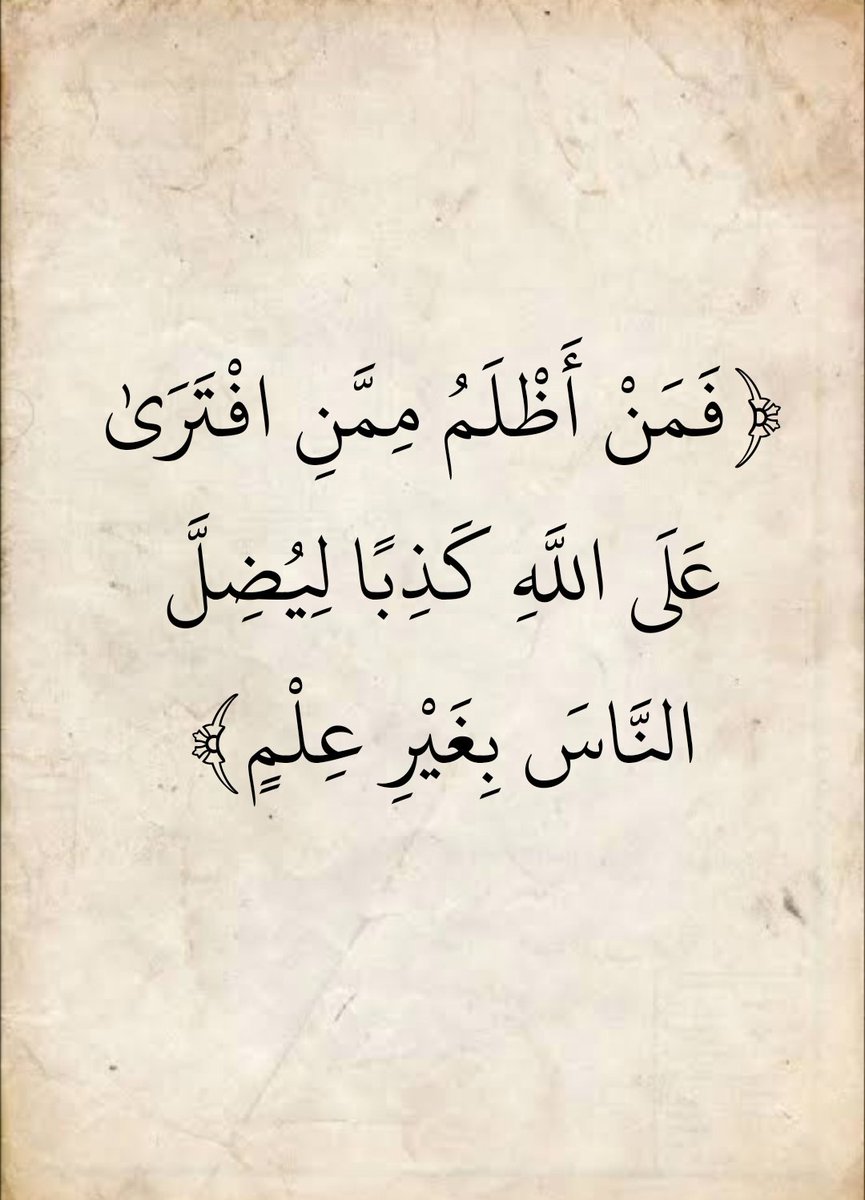 ﴿فَمَنْ أَظْلَمُ مِمَّنِ افْتَرَىٰ
عَلَى اللَّهِ كَذِبًا لِيُضِلَّ
النَّاسَ بِغَيْرِ عِلْمٍ﴾